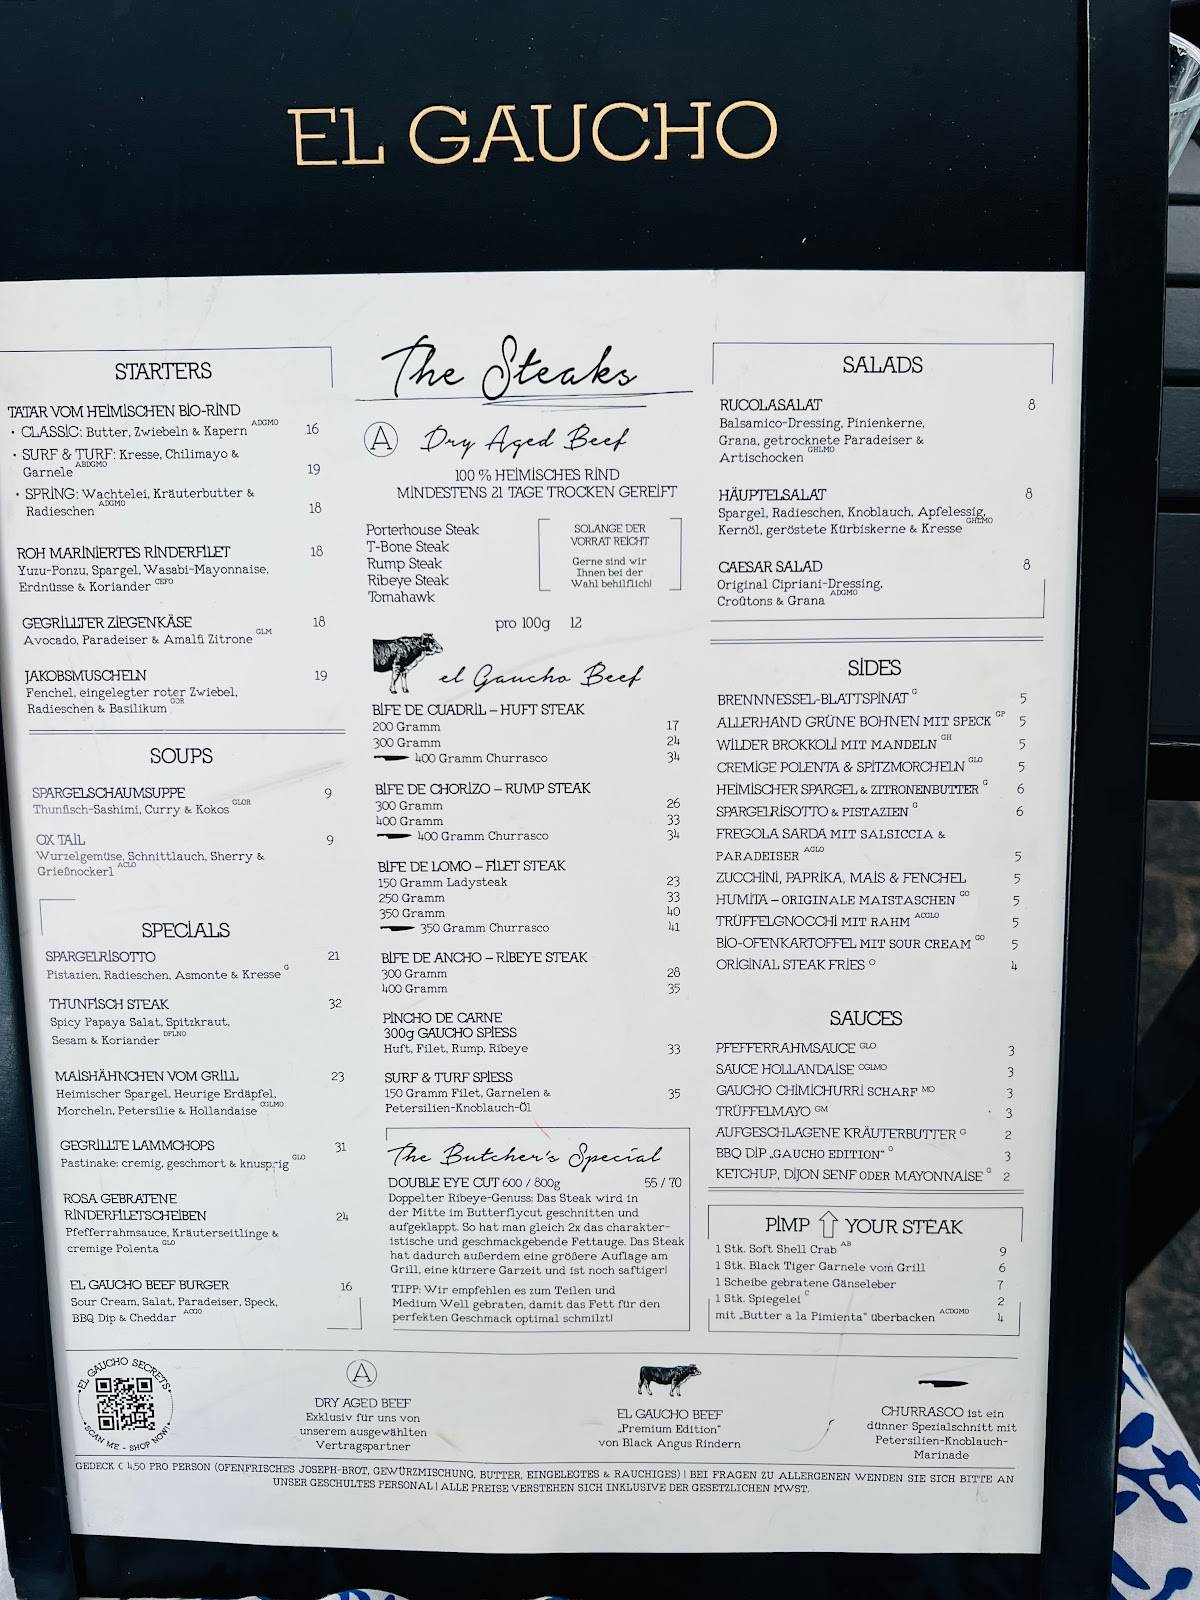 EL GAUCHO
STARTERS
TATAR VOM HEIMISCHEN BIO-RIND
• CLASSIC: Butter, Zwiebeln & Kapern ADGMO 16
• SURF & TURF: Kresse, Chilimayo &
Garnele ABDGMO 19
• SPRING: Wachtelei, Kräuterbutter &
Radieschen ADGMO 18
ROH MARINIERTES RINDERFILET 18
Yuzu-Ponzu, Spargel, Wasabi-Mayonnaise,
Erdnüsse & Koriander CEFO
GEGRILLTER ZIEGENKÄSE 18
Avocado, Paradeiser & Amalfi Zitrone GLM
JAKOBSMUSCHELN 19
Fenchel, eingelegter roter Zwiebel,
Radieschen & Basilikum GOR
SOUPS
SPARGELSCHAUMSUPPE 9
Thunfisch-Sashimi, Curry & Kokos GLOR
OX TAIL 9
Wurzelgemüse, Schnittlauch, Sherry &
Grießnockerl ACLO
SPECIALS
SPARGELRISOTTO 21
Pistazien, Radieschen, Asmonte & Kresse G
THUNFISCH STEAK 32
Spicy Papaya Salat, Spitzkraut,
Sesam & Koriander DFLNO
MAISHÄHNCHEN VOM GRILL 23
Heimischer Spargel, Heurige Erdäpfel,
Morcheln, Petersilie & Hollandaise CGLMO
GEGRILLTE LAMMCHOPS 31
Pastinake: cremig, geschmort & knusprig GLO
ROSA GEBRATENE
RINDERFILETSCHEIBEN 24
Pfefferrahmsauce, Kräuterseitlinge &
cremige Polenta GLO
EL GAUCHO BEEF BURGER 16
Sour Cream, Salat, Paradeiser, Speck,
BBQ Dip & Cheddar ACGO
The Steaks
A Dry Aged Beef
100 % HEIMISCHES RIND
MINDESTENS 21 TAGE TROCKEN GEREIFT
Porterhouse Steak
T-Bone Steak
Rump Steak
Ribeye Steak
Tomahawk
SOLANGE DER
VORRAT REICHT
Gerne sind wir
Ihnen bei der
Wahl behilflich!
pro 100g 12
el Gaucho Beef
BIFE DE CUADRIL – HUFT STEAK
200 Gramm 17
300 Gramm 24
400 Gramm Churrasco 34
BIFE DE CHORIZO – RUMP STEAK
300 Gramm 26
400 Gramm 33
400 Gramm Churrasco 34
BIFE DE LOMO – FILET STEAK
150 Gramm Ladysteak 23
250 Gramm 33
350 Gramm 40
350 Gramm Churrasco 41
BIFE DE ANCHO – RIBEYE STEAK
300 Gramm 28
400 Gramm 35
PINCHO DE CARNE
300g GAUCHO SPIESS
Huft, Filet, Rump, Ribeye 33
SURF & TURF SPIESS
150 Gramm Filet, Garnelen & 35
Petersilien-Knoblauch-Öl
The Butcher's Special
DOUBLE EYE CUT 600 / 800g 55 / 70
Doppelter Ribeye-Genuss: Das Steak wird in
der Mitte im Butterflycut geschnitten und
aufgeklappt. So hat man gleich 2x das charakter-
istische und geschmackgebende Fettauge. Das Steak
hat dadurch außerdem eine größere Auflage am
Grill, eine kürzere Garzeit und ist noch saftiger!
TIPP: Wir empfehlen es zum Teilen und
Medium Well gebraten, damit das Fett für den
perfekten Geschmack optimal schmilzt!
SALADS
RUCOLASALAT 8
Balsamico-Dressing, Pinienkerne,
Grana, getrocknete Paradeiser &
Artischocken GHLMO
HÄUPTELSALAT 8
Spargel, Radieschen, Knoblauch, Apfelessig,
Kernöl, geröstete Kürbiskerne & Kresse GHLMO
CAESAR SALAD 8
Original Cipriani-Dressing,
Croûtons & Grana ADGMO
SIDES
BRENNNESSEL-BLATTSPINAT G 5
ALLERHAND GRÜNE BOHNEN MIT SPECK GP 5
WILDER BROKKOLI MIT MANDELN GH 5
CREMIGE POLENTA & SPITZMORCHELN GLO 5
HEIMISCHER SPARGEL & ZITRONENBUTTER G 6
SPARGELRISOTTO & PISTAZIEN G 6
FREGOLA SARDA MIT SALSICCIA &
PARADEISER AGLO 5
ZUCCHINI, PAPRIKA, MAIS & FENCHEL 5
HUMITA – ORIGINALE MAISTASCHEN GO 5
TRÜFFELGNOCCHI MIT RAHM ACGLO 5
BIO-OFENKARTOFFEL MIT SOUR CREAM GO 5
ORIGINAL STEAK FRIES O 4
SAUCES
PFEFFERRAHMSAUCE GLO 3
SAUCE HOLLANDAISE CGLMO 3
GAUCHO CHIMICHURRI SCHARF MO 3
TRÜFFELMAYO GM 3
AUFGESCHLAGENE KRÄUTERBUTTER G 2
BBQ DIP „GAUCHO EDITION“ O 3
KETCHUP, DIJON SENF ODER MAYONNAISE G 2
PIMP YOUR STEAK
1 Stk. Soft Shell Crab AB 9
1 Stk. Black Tiger Garnele vom Grill 6
1 Scheibe gebratene Gänseleber 7
1 Stk. Spiegelei C 2
mit „Butter a la Pimienta“ überbacken ACDGMO 4
EL GAUCHO SECRETS
SCAN ME - SHOP NOW!
A
DRY AGED BEEF
Exklusiv für uns von
unserem ausgewählten
Vertragspartner
EL GAUCHO BEEF
„Premium Edition“
von Black Angus Rindern
CHURRASCO ist ein
dünner Spezialschnitt mit
Petersilien-Knoblauch-
Marinade
GEDECK € 4,50 PRO PERSON (OFENFRISCHES JOSEPH-BROT, GEWÜRZMISCHUNG, BUTTER, EINGELEGTES & RAUCHIGES) | BEI FRAGEN ZU ALLERGENEN WENDEN SIE SICH BITTE AN
UNSER GESCHULTES PERSONAL | ALLE PREISE VERSTEHEN SICH INKLUSIVE DER GESETZLICHEN MWST.